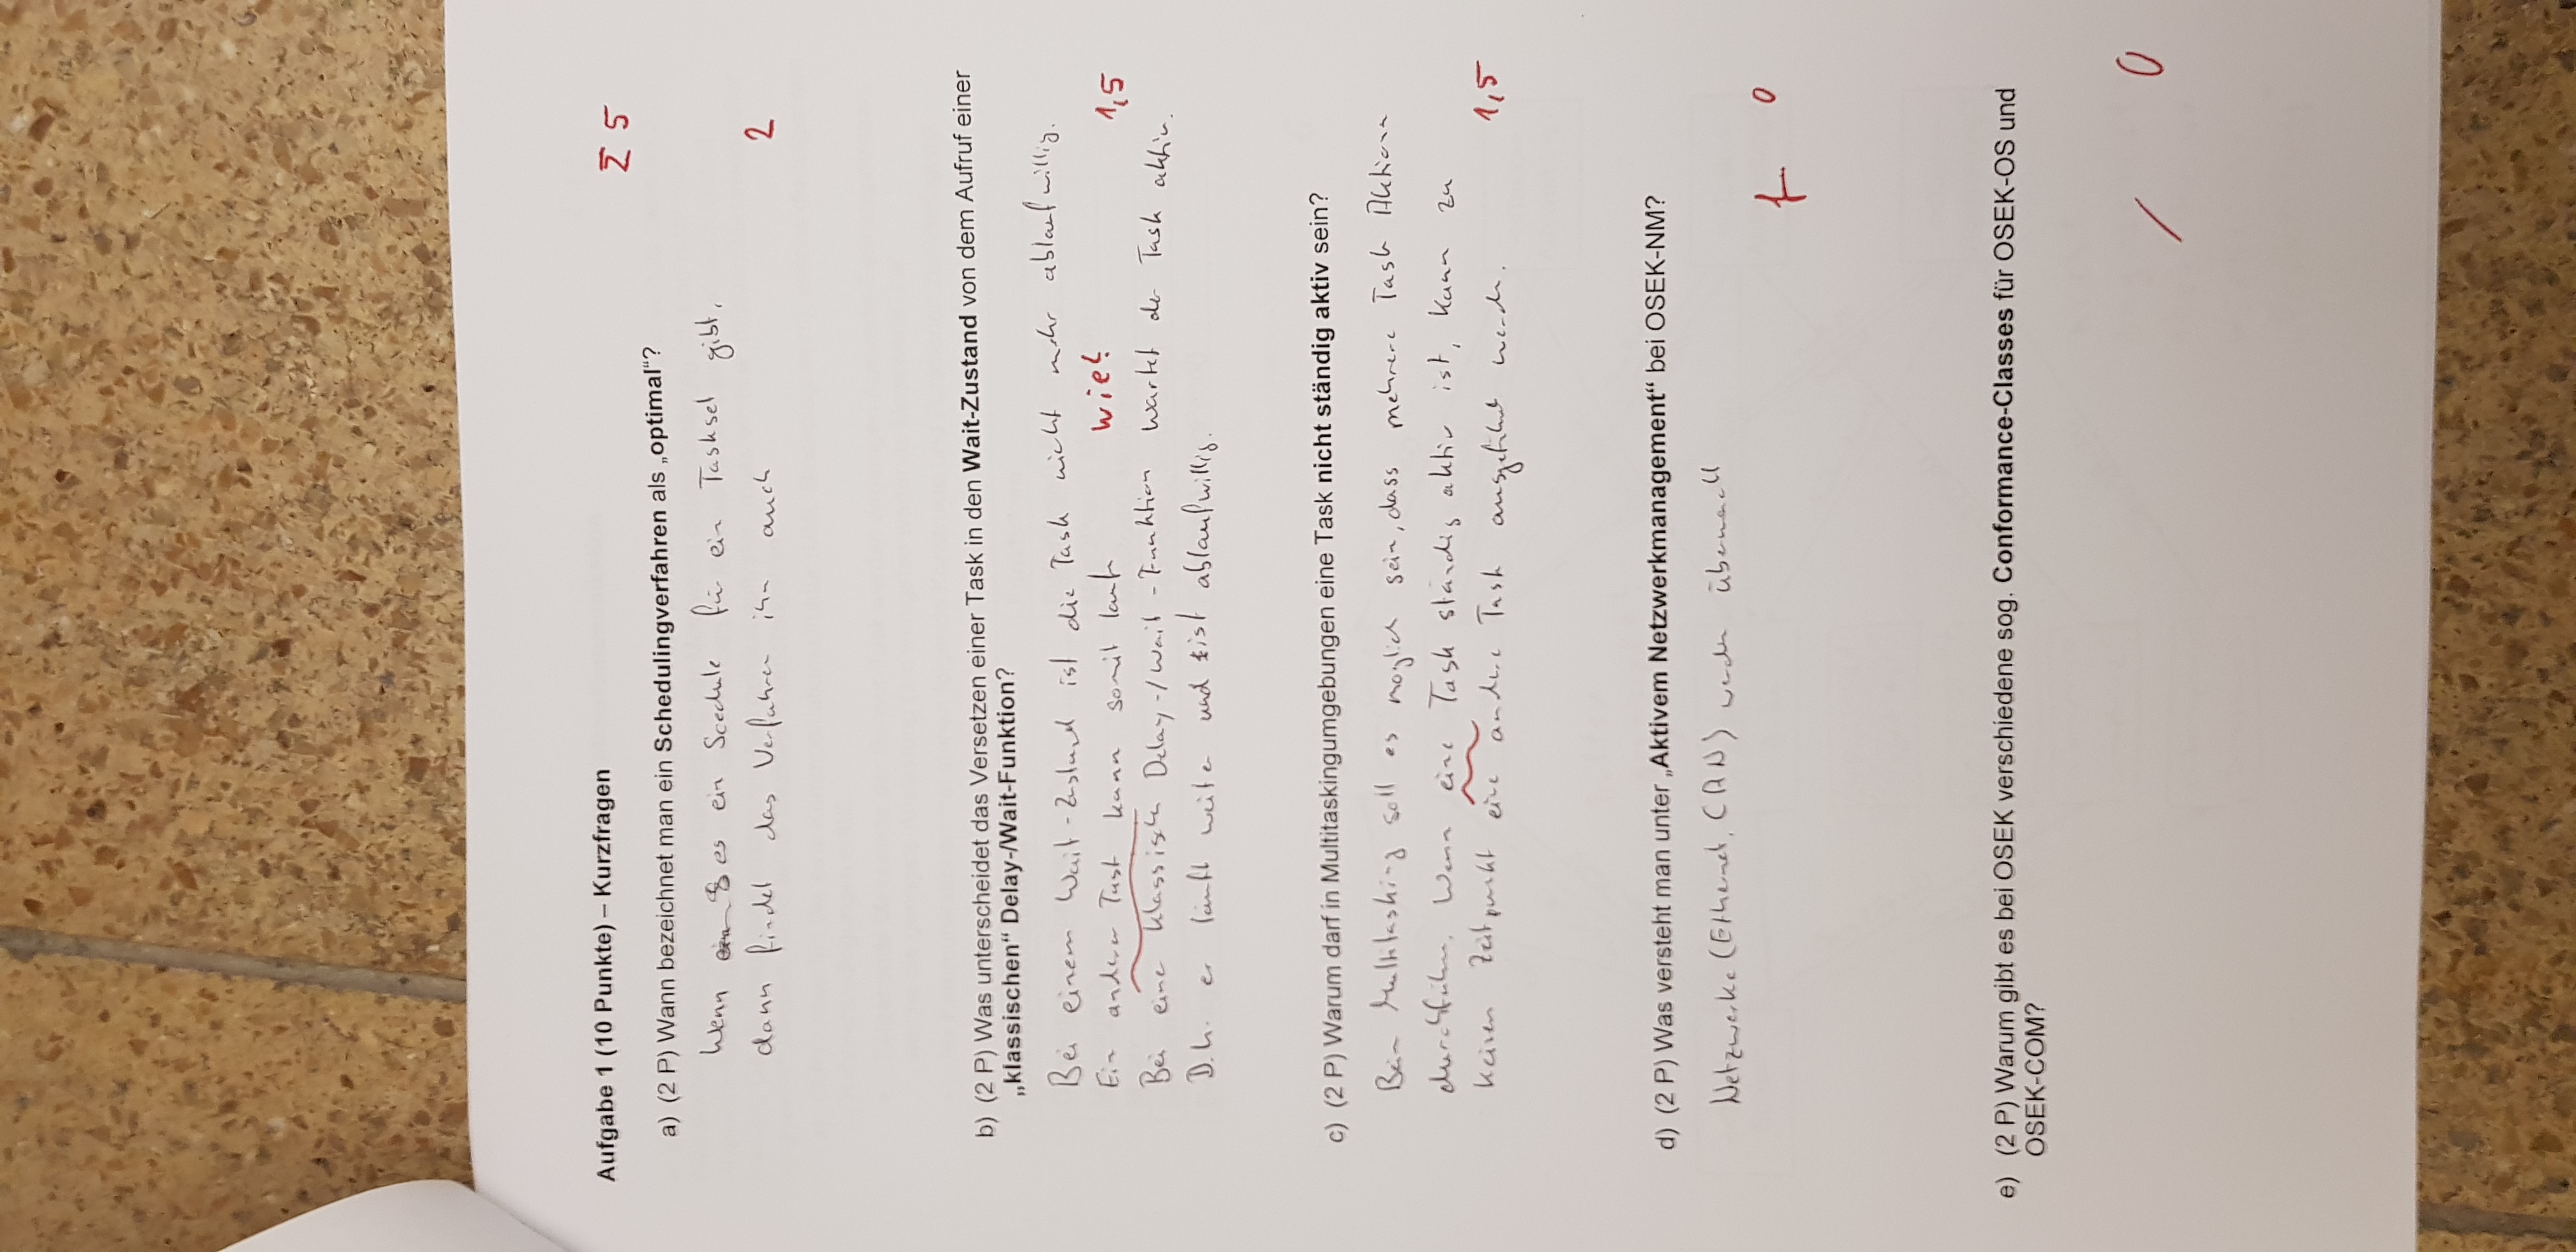 Aufgabe 1 (10 Punkte) – Kurzfragen
Σ 5
a) (2 P) Wann bezeichnet man ein Schedulingverfahren als „optimal“?
Wenn es ein Scedule für ein Taskset gibt,
dann findet das Verfahren ihn auch
2
b) (2 P) Was unterscheidet das Versetzen einer Task in den Wait-Zustand von dem Aufruf einer
„klassischen“ Delay-/Wait-Funktion?
Bei einem Wait-Zustand ist die Task nicht mehr ablaufwillig.
Ein anderer Task kann somit laufen
wie?
1,5
Bei einer klassischen Delay-/Wait-Funktion wartet der Task aktiv.
D.h. er läuft weiter und ist ablaufwillig.
c) (2 P) Warum darf in Multitaskingumgebungen eine Task nicht ständig aktiv sein?
Beim Multitasking soll es möglich sein, dass mehrere Task Aktionen
durchführen. Wenn eine Task ständig aktiv ist, kann zu
keinem Zeitpunkt eine andere Task ausgeführt werden.
1,5
d) (2 P) Was versteht man unter „Aktivem Netzwerkmanagement“ bei OSEK-NM?
Netzwerke (Ethernet, CAN) werden überwacht
f 0
e) (2 P) Warum gibt es bei OSEK verschiedene sog. Conformance-Classes für OSEK-OS und
OSEK-COM?
/ 0